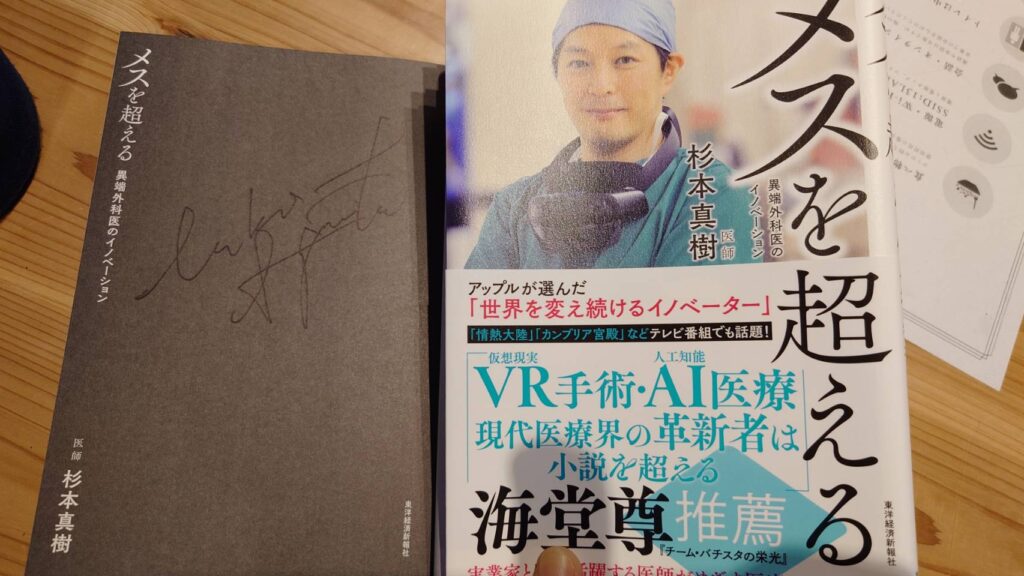 メスを超える
異端外科医のイノベーション
医師
杉本真樹
東洋経済新報社
メスを超える
異端外科医の
イノベーション
杉本真樹
医師
アップルが選んだ
「世界を変え続けるイノベーター」
「情熱大陸」「カンブリア宮殿」などテレビ番組でも話題!
仮想現実 人工知能
VR手術・AI医療
現代医療界の革新者は
小説を超える
海堂尊推薦
『チーム・バチスタの栄光』
東洋経済新報社